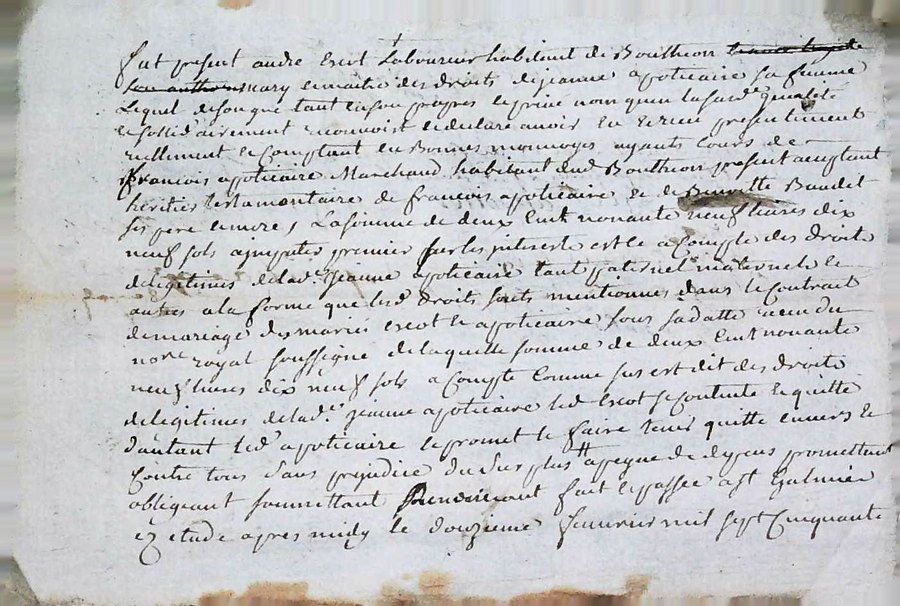 fut present andre Escot Laboureur habitant de Boutheon
mary et maitre des droits de jeanne apoticaire sa femme
Lequel de son gré tant en son propre et privé nom quen lasusde qualité
et sollidairement reconnoist et declare avoir eu et receu presentement
reellement et Comptant en Bonnes monnoyes ayants Cours de
francois apoticaire Marchand habitant dud Boutheon present acceptant
heritier testamentaire de francois apoticaire et de Benoitte Baudet
ses pere et mere, La somme de deux Cent nonante neuf livres dix
neuf sols a imputer premier sur les interests et le a Compte des droits
de legitimes de lade jeanne apoticaire tant paternel maternels et
autres a la forme que lesd droits sont mentionnes dans le Contrait
de mariage des mariés escot et apoticaire sous sa datte receu du
nore royal soussigne de laquelle somme de deux Cent nonante
neuf livres dix neuf sols a Compte Comme sus est dit des droits
de legitimes de lade jeanne apoticaire led escot se Contente et quitte
d'autant led apoticaire et promet le faire tenir quitte envers et
Contre tous sans prejudice du sus plus a peyne de depens promettant
obligeant soumettant Renoncant fait et passée a st Galmier
ez etude apres midy le douzieme janvier mil sept Cinquante